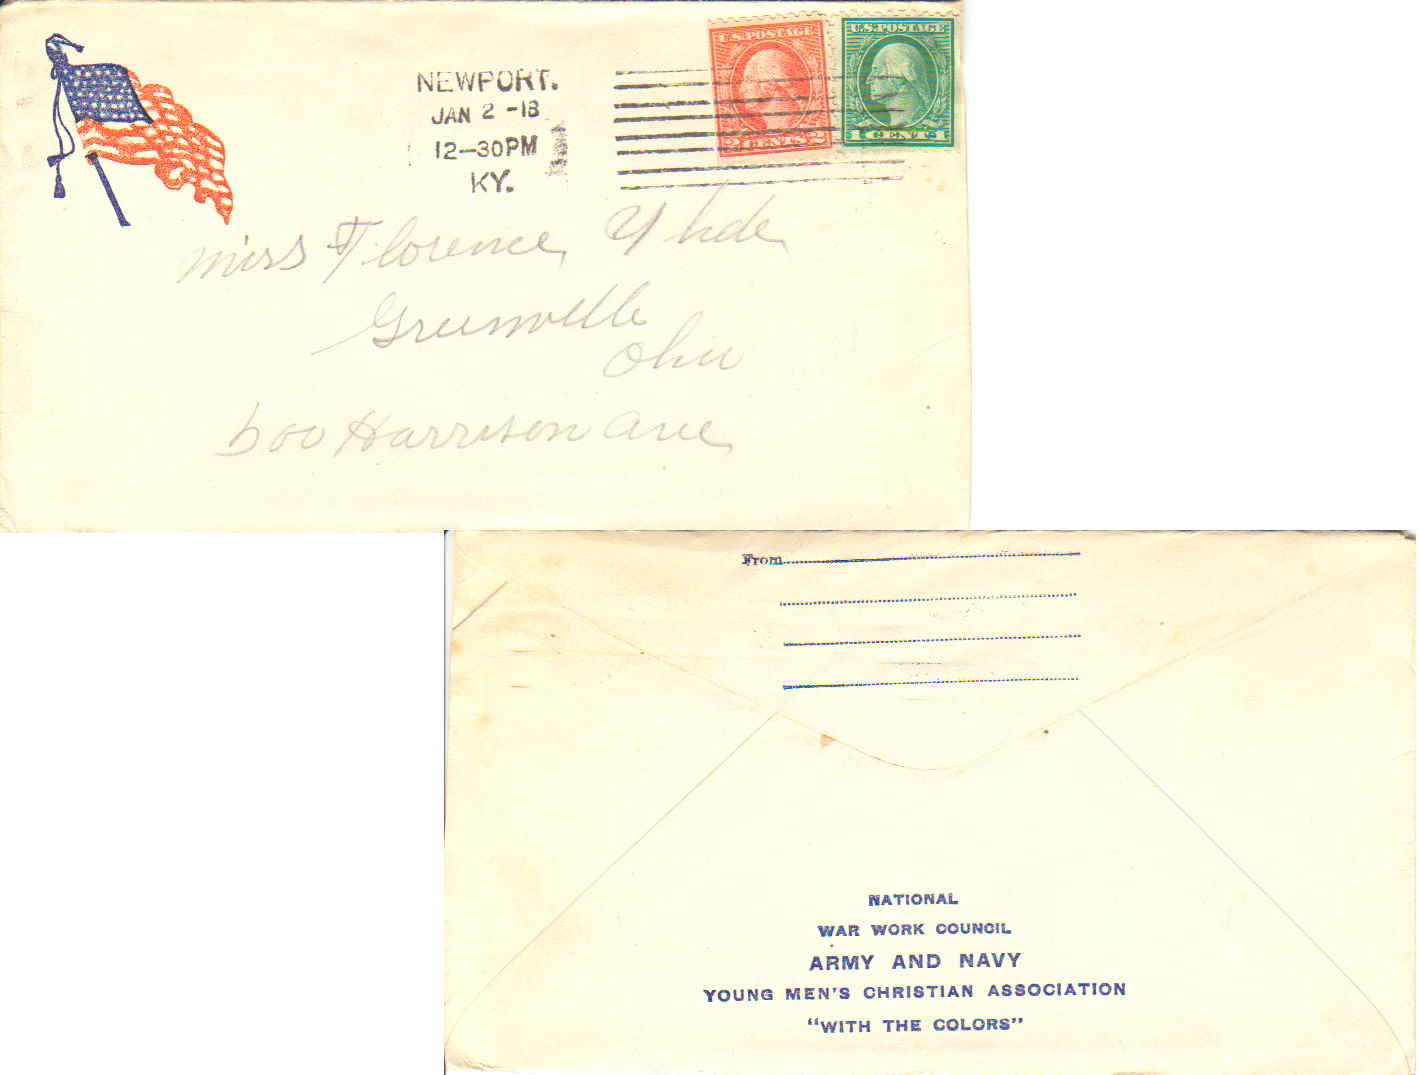 NEWPORT.
JAN 2 -18
12-30PM
KY.
U.S.POSTAGE
2 CENTS 2
U.S.POSTAGE
1 CENT 1
Miss Florence
Greenville
Ohio
600 Harrison Ave
From
NATIONAL
WAR WORK COUNCIL
ARMY AND NAVY
YOUNG MEN'S CHRISTIAN ASSOCIATION
"WITH THE COLORS"